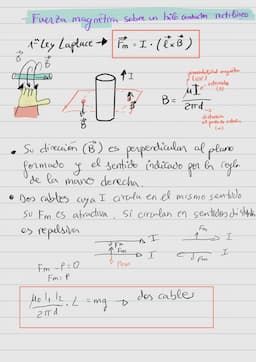 Fuerza magnética sobre un hilo conductor rectilíneo
1ª Ley Laplace → Fm = I · (ℓ × B)
B
B
I
B
permeabilidad magnética
intensidad
B = μI / 2πd
distancia
• Su dirección (B) es perpendicular al plano
formado y el sentido indicado por la regla
de la mano derecha.
• Dos cables cuya I circula en el mismo sentido
su Fm es atractiva. Si circulan en sentidos distintos
es repulsiva
I
Fm
Fm
I
Peso
Fm
I
Fm
I
Fm - P = 0
Fm = P
μ₀ I₁ I₂ / 2πd · L = mg → dos cables